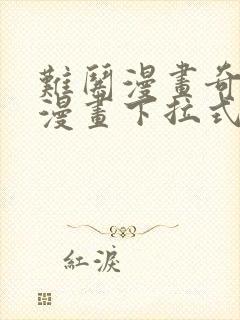 難鬧漫畫奇
漫畫下拉式
紅淚